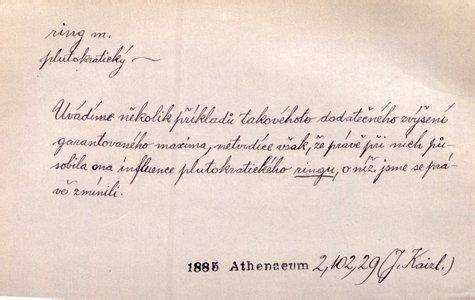 ring m.
plutokratický —
Uvádíme několik příkladů takovéhoto dodatečného zvýšení
garantovaného maxima, netvrdíce však, že právě při nich pů-
sobila ona influence plutokratického ringu, o níž jsme se prá-
vě zmínili.
1885 Athenaeum 2,102,29 (J. Kaizl.)